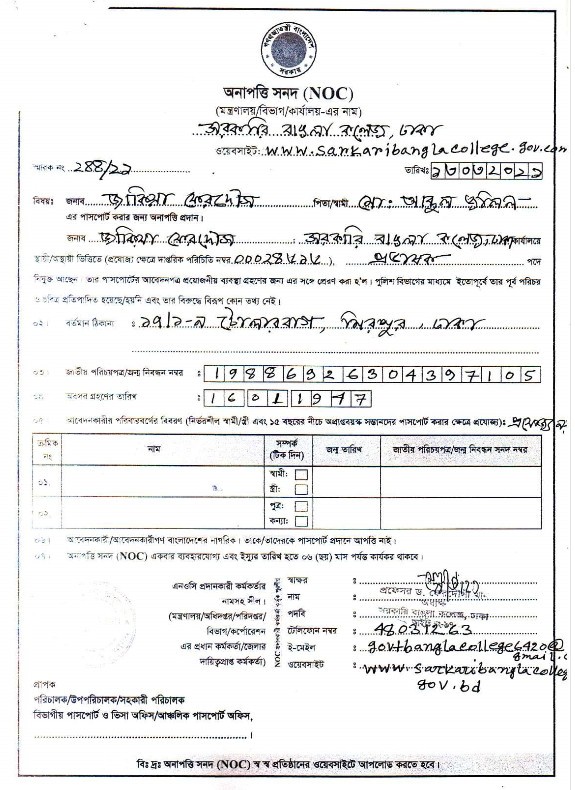 গণপ্রজাতন্ত্রী বাংলাদেশ
সরকার
অনাপত্তি সনদ (NOC)
(মন্ত্রণালয়/বিভাগ/কার্যালয়-এর নাম)
সরকারি বাঙলা কলেজ, ঢাকা
ওয়েবসাইট: www.sarkaribanglacollege.gov.com
স্মারক নং ২৪৪/২১ তারিখ:
বিষয়: জনাব ফেরদৌস পিতা/স্বামী মো: আব্দুল
এর পাসপোর্ট করার জন্য অনাপত্তি প্রদান।
জনাব ফেরদৌস সরকারি বাঙলা কলেজ, ঢাকা কার্যালয়ে
স্থায়ী/অস্থায়ী ভিত্তিতে (প্রযোজ্য ক্ষেত্রে দাপ্তরিক পরিচিতি নম্বর প্রভাষক পদে
নিযুক্ত আছেন। তার পাসপোর্টের আবেদনপত্র প্রয়োজনীয় ব্যবস্থা গ্রহণের জন্য এর সঙ্গে প্রেরণ করা হ'ল। পুলিশ বিভাগের মাধ্যমে ইতোপূর্বে তার পূর্ব পরিচয়
ও চরিত্র প্রতিপাদিত হয়েছে/হয়নি এবং তার বিরুদ্ধে বিরূপ কোন তথ্য নেই।
০২। বর্তমান ঠিকানা : টোলারবাগ, মিরপুর, ঢাকা
০৩। জাতীয় পরিচয়পত্র/জন্ম নিবন্ধন নম্বর : 19886926304397105
০৪। অবসর গ্রহণের তারিখ : 16011947
০৫। আবেদনকারীর পরিবারবর্গের বিবরণ (নির্ভরশীল স্বামী/স্ত্রী এবং ১৫ বছরের নীচে অপ্রাপ্তবয়স্ক সন্তানদের পাসপোর্ট করার ক্ষেত্রে প্রযোজ্য):
ক্রমিক নং নাম সম্পর্ক (টিক দিন) জন্ম তারিখ জাতীয় পরিচয়পত্র/জন্ম নিবন্ধন সনদ নম্বর
০১. স্বামী:
স্ত্রী:
০২. পুত্র:
কন্যা:
০৬। আবেদনকারী/আবেদনকারীগণ বাংলাদেশের নাগরিক। তাকে/তাদেরকে পাসপোর্ট প্রদানে আপত্তি নাই।
০৭। অনাপত্তি সনদ (NOC) একবার ব্যবহারযোগ্য এবং ইস্যুর তারিখ হতে ০৬ (ছয়) মাস পর্যন্ত কার্যকর থাকবে।
এনওসি প্রদানকারী কর্মকর্তার স্বাক্ষর :
নামসহ সীল। নাম : প্রফেসর ড.
(মন্ত্রণালয়/অধিদপ্তর/পরিদপ্তর/ পদবি : অধ্যক্ষ
সরকারি বাঙলা কলেজ, ঢাকা
বিভাগ/কর্পোরেশন টেলিফোন নম্বর : 48031263
এর প্রধান কর্মকর্তা/জেলার ই-মেইল : govtbanglacollege6420@
gmail.c
দায়িত্বপ্রাপ্ত কর্মকর্তা) ওয়েবসাইট : www.sarkaribanglacolleg
gov.bd
প্রাপক
পরিচালক/উপপরিচালক/সহকারী পরিচালক
বিভাগীয় পাসপোর্ট ও ভিসা অফিস/আঞ্চলিক পাসপোর্ট অফিস,
বিঃ দ্রঃ অনাপত্তি সনদ (NOC) স্ব স্ব প্রতিষ্ঠানের ওয়েবসাইটে আপলোড করতে হবে।